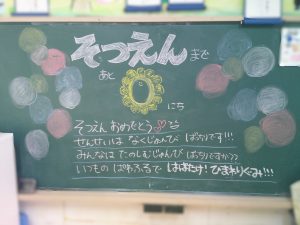 そつえんまで
あと
0
にち
そつえん おめでとう
せんせいは なくじゅんび ばっちりです!!!
みんなは たのしむじゅんび ばっちりですか??
いつもの ぱわふるで はばたけ! ひまわりぐみ!!!